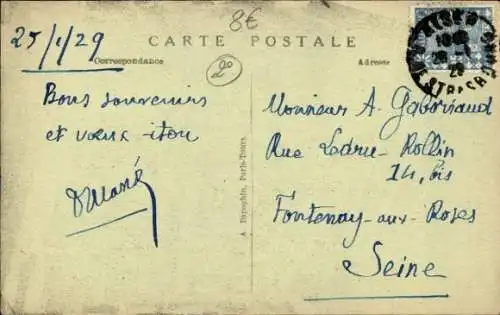 25/1/29
8€
CARTE POSTALE
Correspondance
Adresse
2º
Bons souvenirs
et vœux itou
A. Breughin, Paris-Tours.
Monsieur A. Gaboriaud
Rue Ledru-Rollin
14, bis
Fontenay-aux-Roses
Seine
ALGER